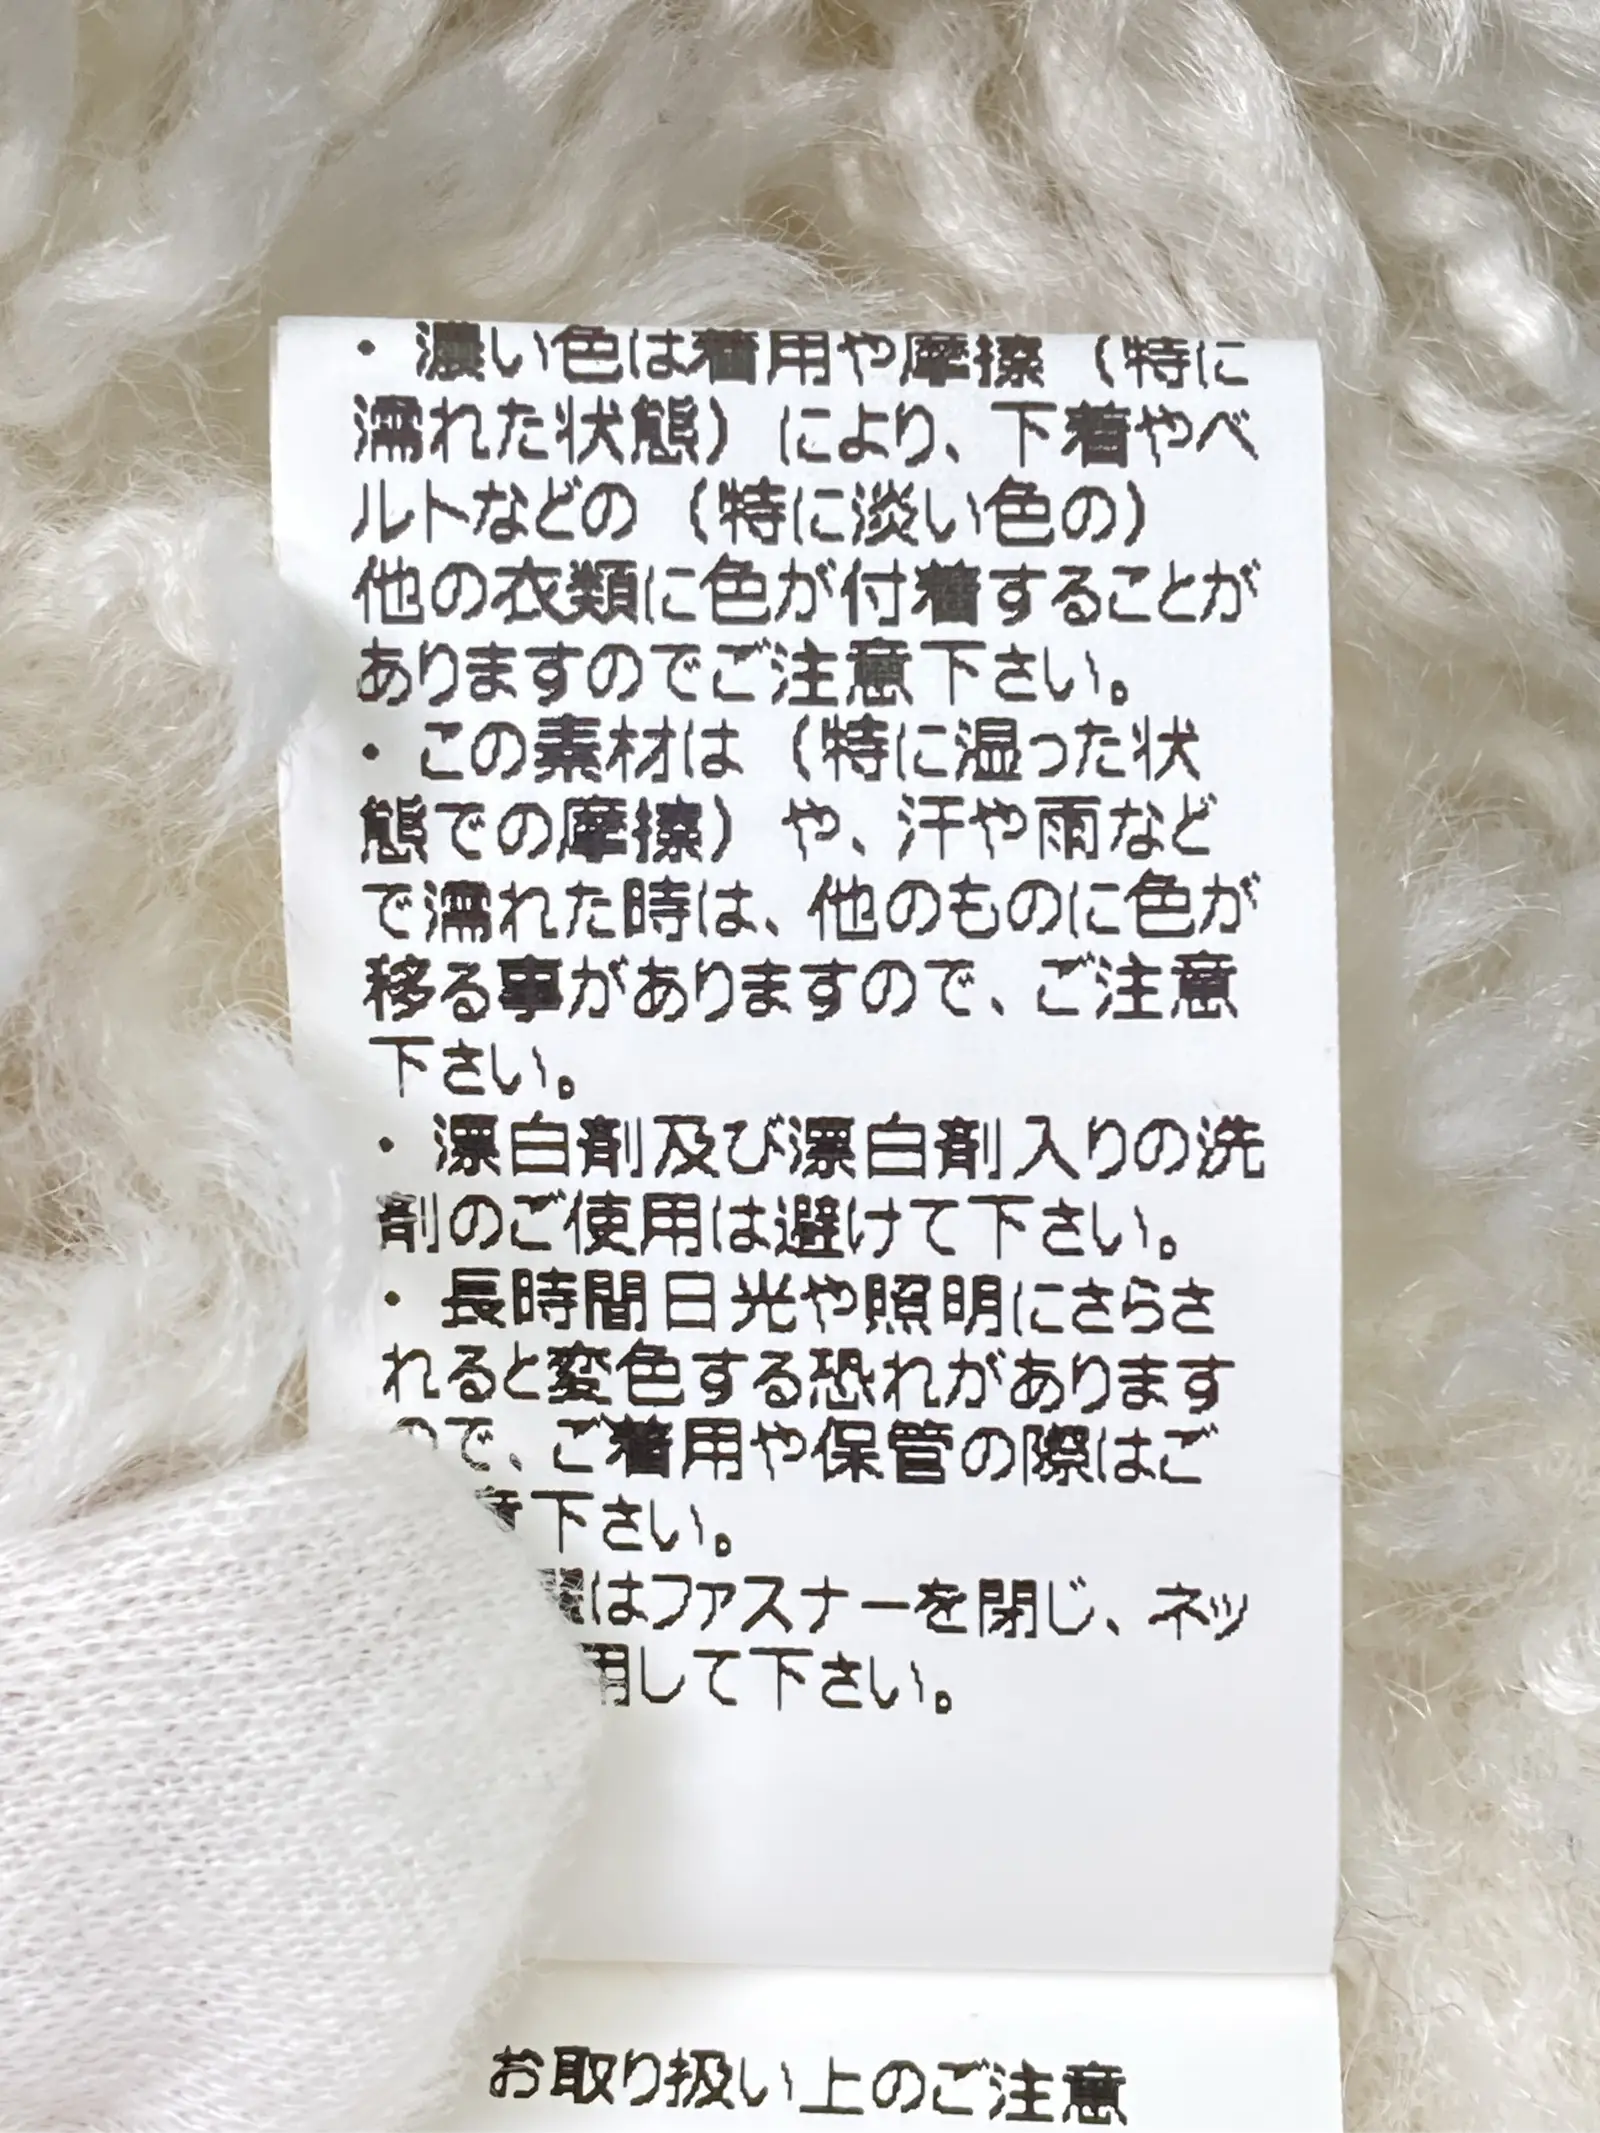 ・濃い色は着用や摩擦（特に
濡れた状態）により、下着やベ
ルトなどの（特に淡い色の）
他の衣類に色が付着することが
ありますのでご注意下さい。
・この素材は（特に温った状
態での摩擦）や、汗や雨など
で濡れた時は、他のものに色が
移る事がありますので、ご注意
下さい。
・漂白剤及び漂白剤入りの洗
剤のご使用は避けて下さい。
・長時間日光や照明にさらさ
れると変色する恐れがあります
ので、ご着用や保管の際はご
意下さい。
はファスナーを閉じ、ネッ
用して下さい。
お取り扱い上のご注意